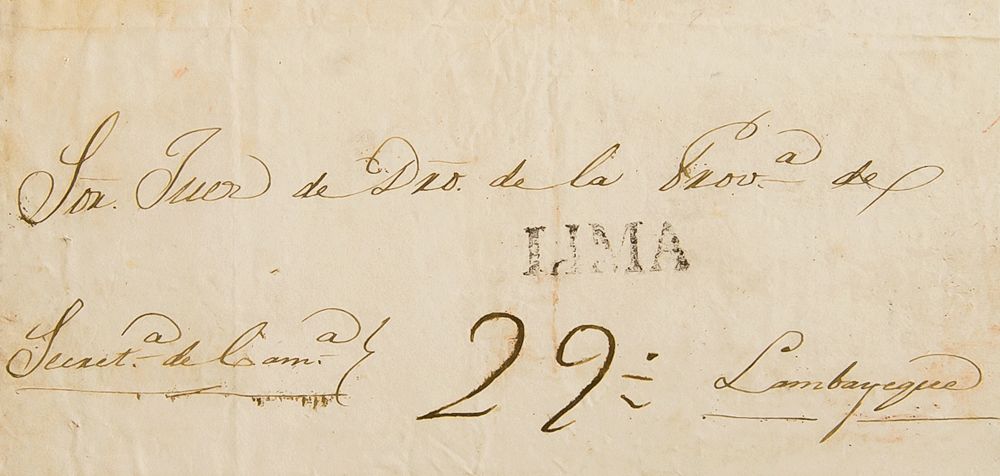 Sōr. Juez de Dro. de la Prov.ª de
LIMA
Secret.ª de Cam.ª
29
Lambayeque